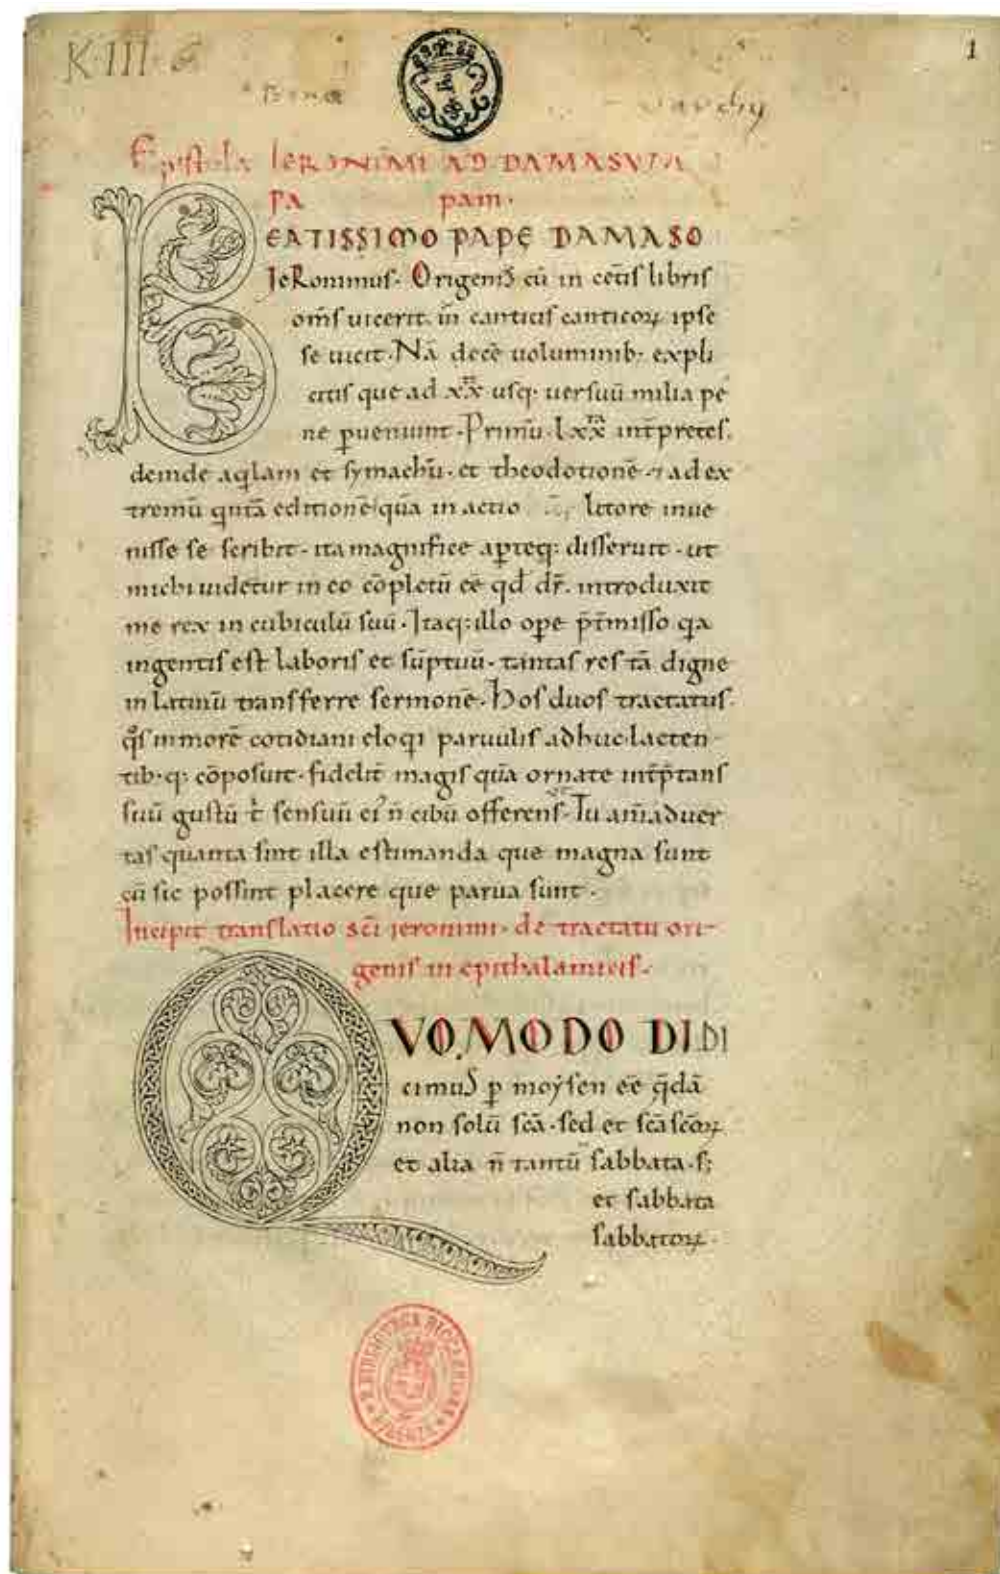 K·III·6
1
Epistola IERONIMI AD DAMASUM
PA pam·
BEATISSIMO PAPĘ DAMASO
IeRonimus· Origenis cū in cet̄is libris
om̄s uicerit· in canticis canticoꝝ ipse
se uicit· Nā decē uoluminib; expli
citis que ad xx^ti usq; uersuū milia pe
ne ꝑueniunt· Primū· lxx^ta int̄pretes·
deinde aq̇lam et symachū· et theodotionē· ⁊ ad ex
tremū quītā editionē quā in actio litore inue
nisse se scribit· ita magnifice aꝑteq; disseruit· ut
michi uideatur in eo cōpletū eē qd̄ dr̄· introduxit
me rex in cubiculū suū· Itaq; illo oꝑe p̄t̄misso qa
ingentis est laboris et sūptuū· tantas res tā digne
in latinū transferre sermonē· Hos duos tractatus·
qͦs in morē cotidiani eloqi paruulis adhuc lacten
tib·q; cōposuit· fidelit̄ magis quā ornate int̄p̄tans
suū gustū t̄ sensuū ei᷒ n̄ cibū offerens· Tu am̄aduer
tas quanta sint illa estimanda que magna sunt
cū sic possint placere que parua sunt·
Incipit translatio sc̄i ieronimi· de tractatu ori-
genis in epithalamicis·
QVOMODO DIDI
cimus ꝑ moẏsen eē q̄dā
non solū sc̄a· sed et sc̄a sc̄oꝝ
et alia n̄ tantū sabbata· s;
et sabbata
sabbatoꝝ·
R. BIBLIOTECA RICCARDIANA
FIRENZE